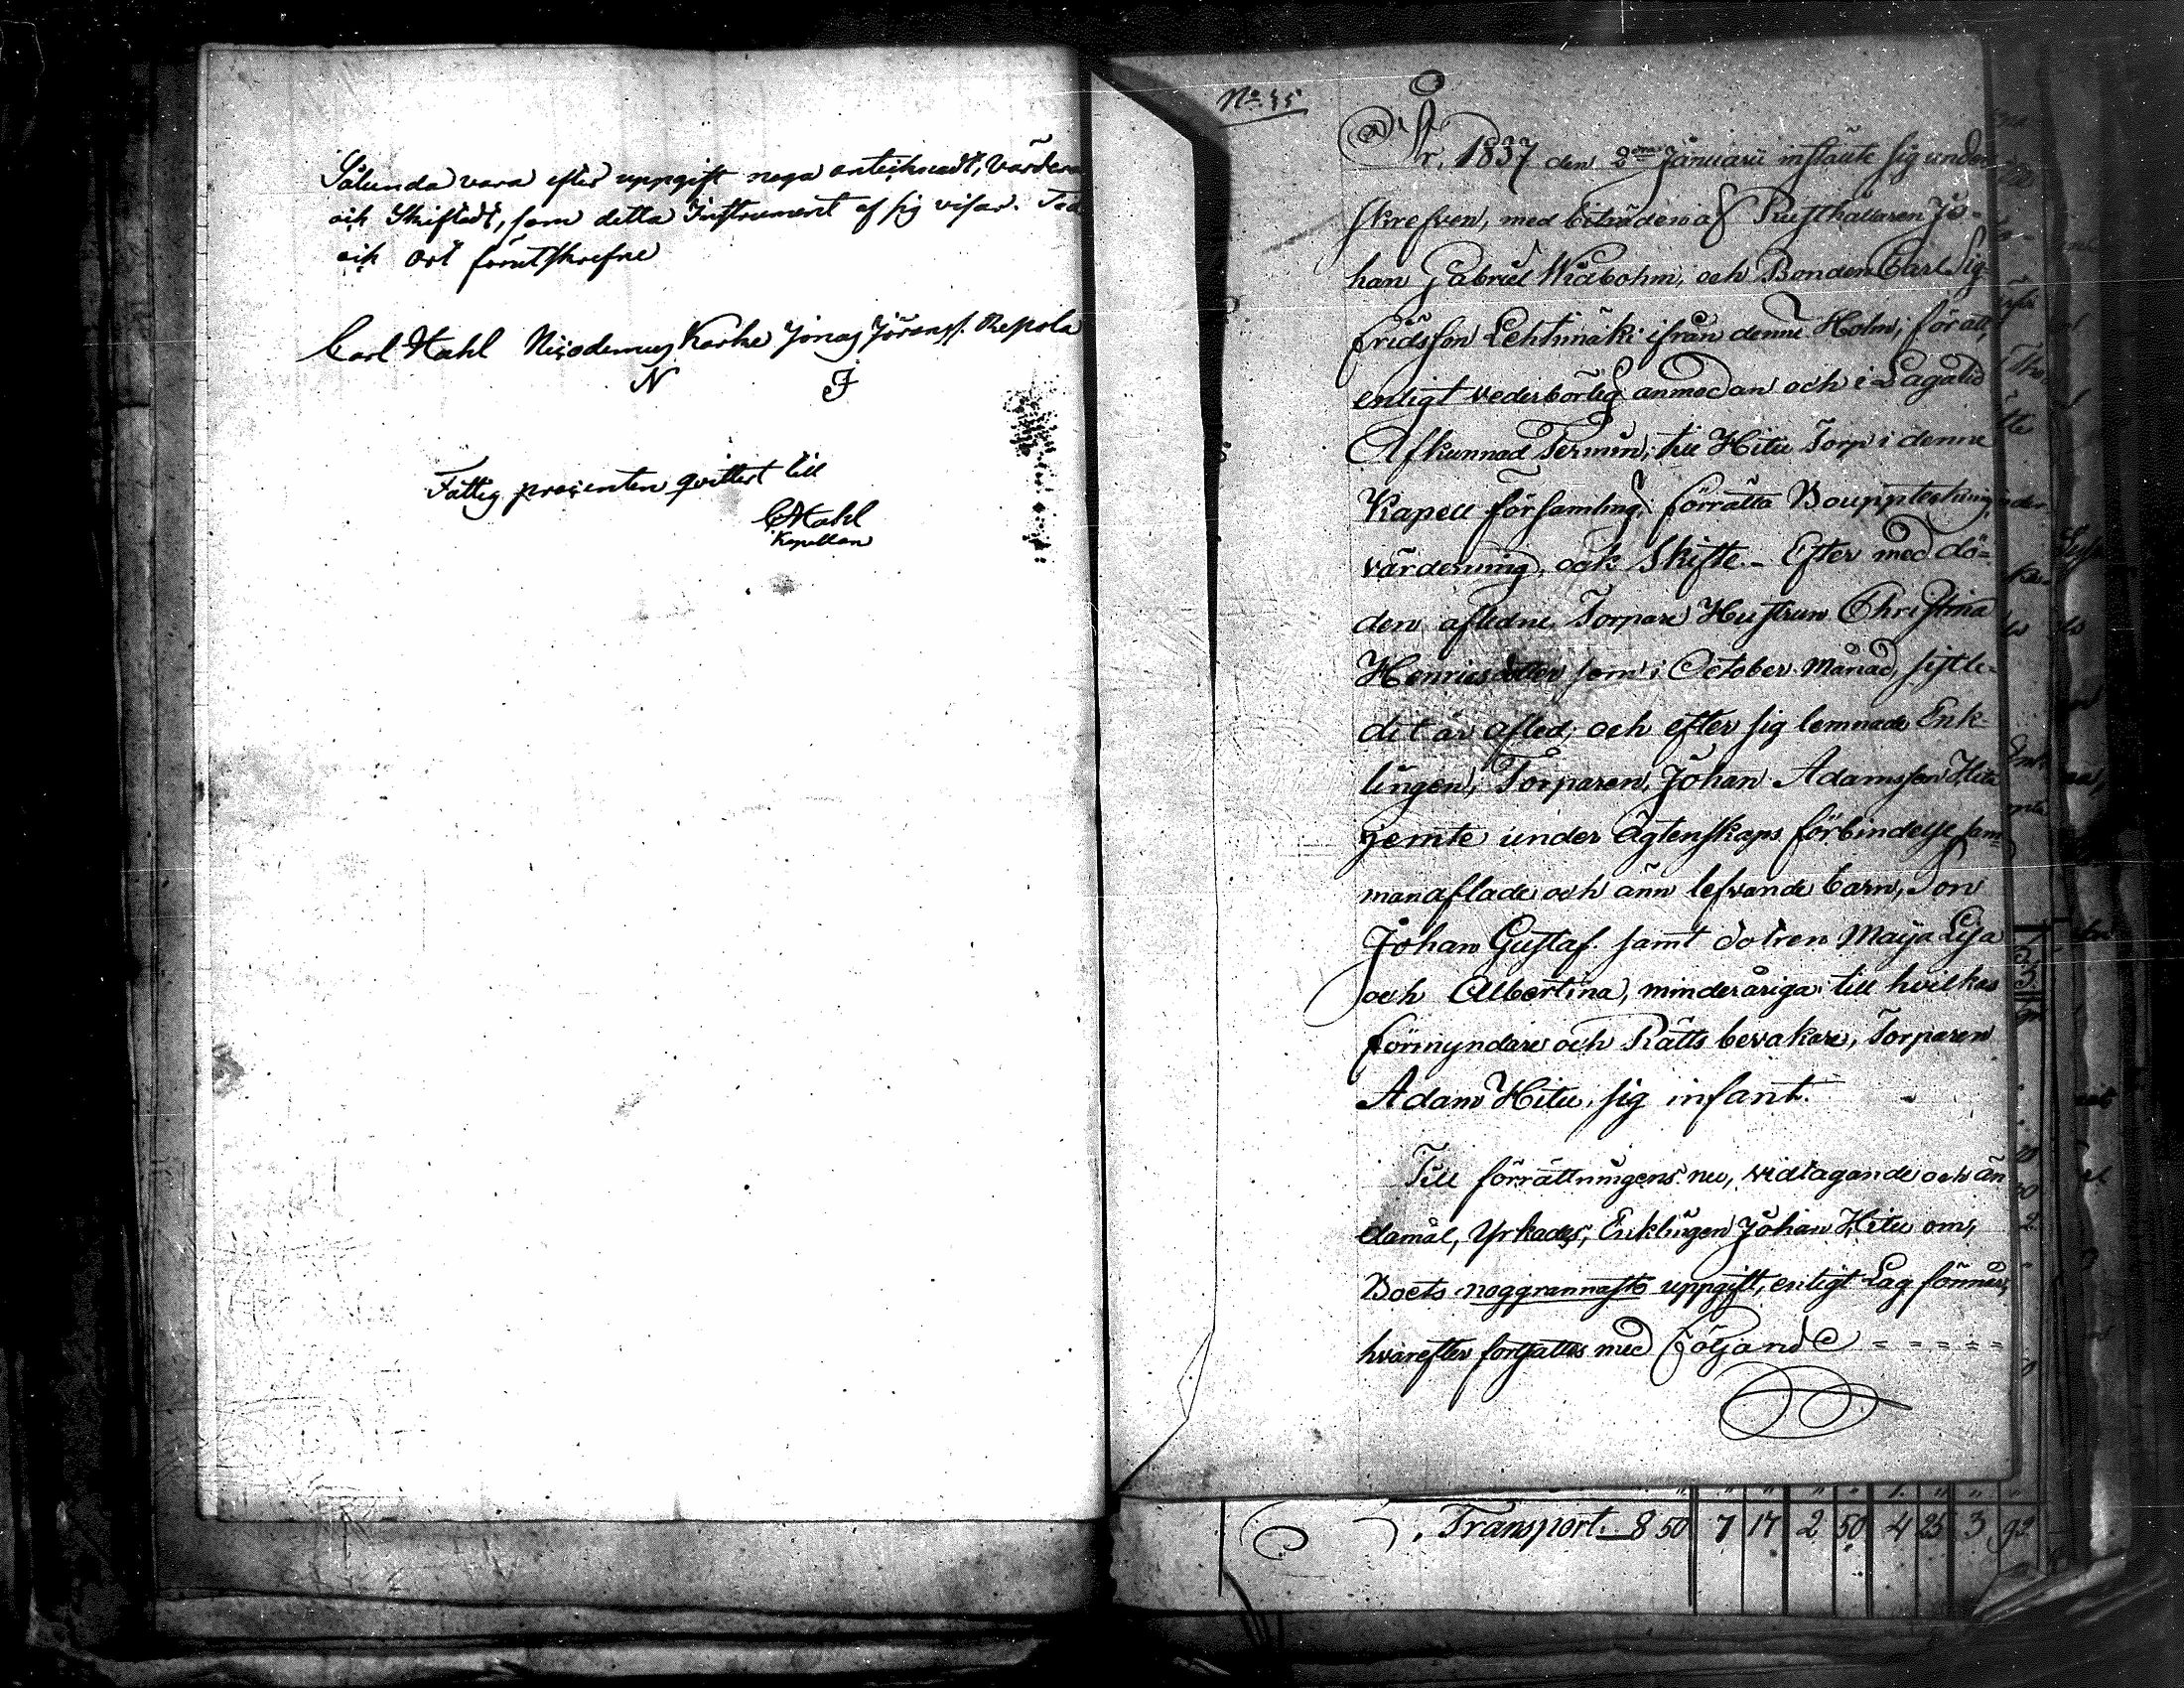 Sålunda vara efter uppgift noga antecknadt, värdera
och Skiftadt, som detta Instrument af sig visar.
och Ort förutskrefne
Carl Stahl Nicodemus Karke Jonas Jöranss. Repola
N J
Fattig procenten qvittert till
CStahl
Kapellan
No
År 1837 den 2dra Januarii instälte sig under
skrefven, med biträden af Rusthållaren Jo-
han Gabriel Widbohm, och Bonden Carl Sig-
fridsson Lehtimäki ifrån denne Holm, för att,
enligt vederbörlig anmodan och i Lagatid
Afkunnad Termin, till Hitu Torp i denne
Kapell församling, förrätta Bouppteckning,
värdering, och Skifte. Efter med dö-
den aflidne Torpare Hustrun Christina
Henricsdotter som i October Månad, sistle-
det år afled, och efter sig lemnade Enk-
lingen, Torparen, Johan Adamsson Hitu
jemte under ägtenskaps förbindelse sam-
manaflade och änn lefvande barn, Son
Johan Gustaf. samt dotren Maija Lisa
och Albertina, minderåriga; till hvilkas
förmyndare och Rätts bevakare, Torparen
Adam Hitu, sig infant.
Till förrättningens nu, vidtagande och än
damål, Yrkades, Enklingen Johan Hitu om,
Boets noggrannaste uppgift, enligt Lag
hvarefter fortfattes med Följande = = = = =
Transport. 8 50 7 17 2 50 4 25 3 92